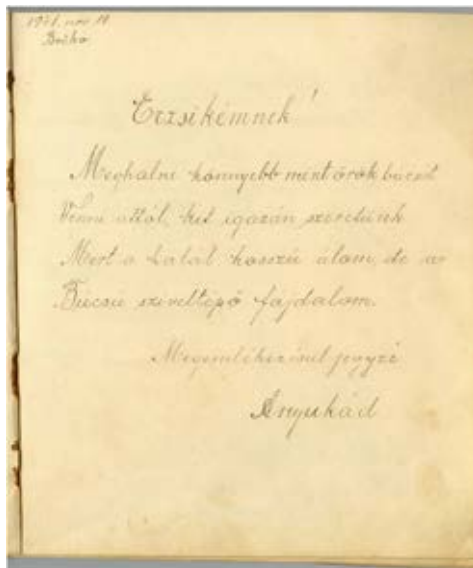 1941. nov 18
Bácska
Erzsikémnek!
Meghalni könnyebb mint örök bucsút
Venni attól, kit igazán szeretünk
Mert a halál hosszú álom, de a
Bucsú szivettépő fájdalom.
Megemlékezésül jegyzé
Anyukád